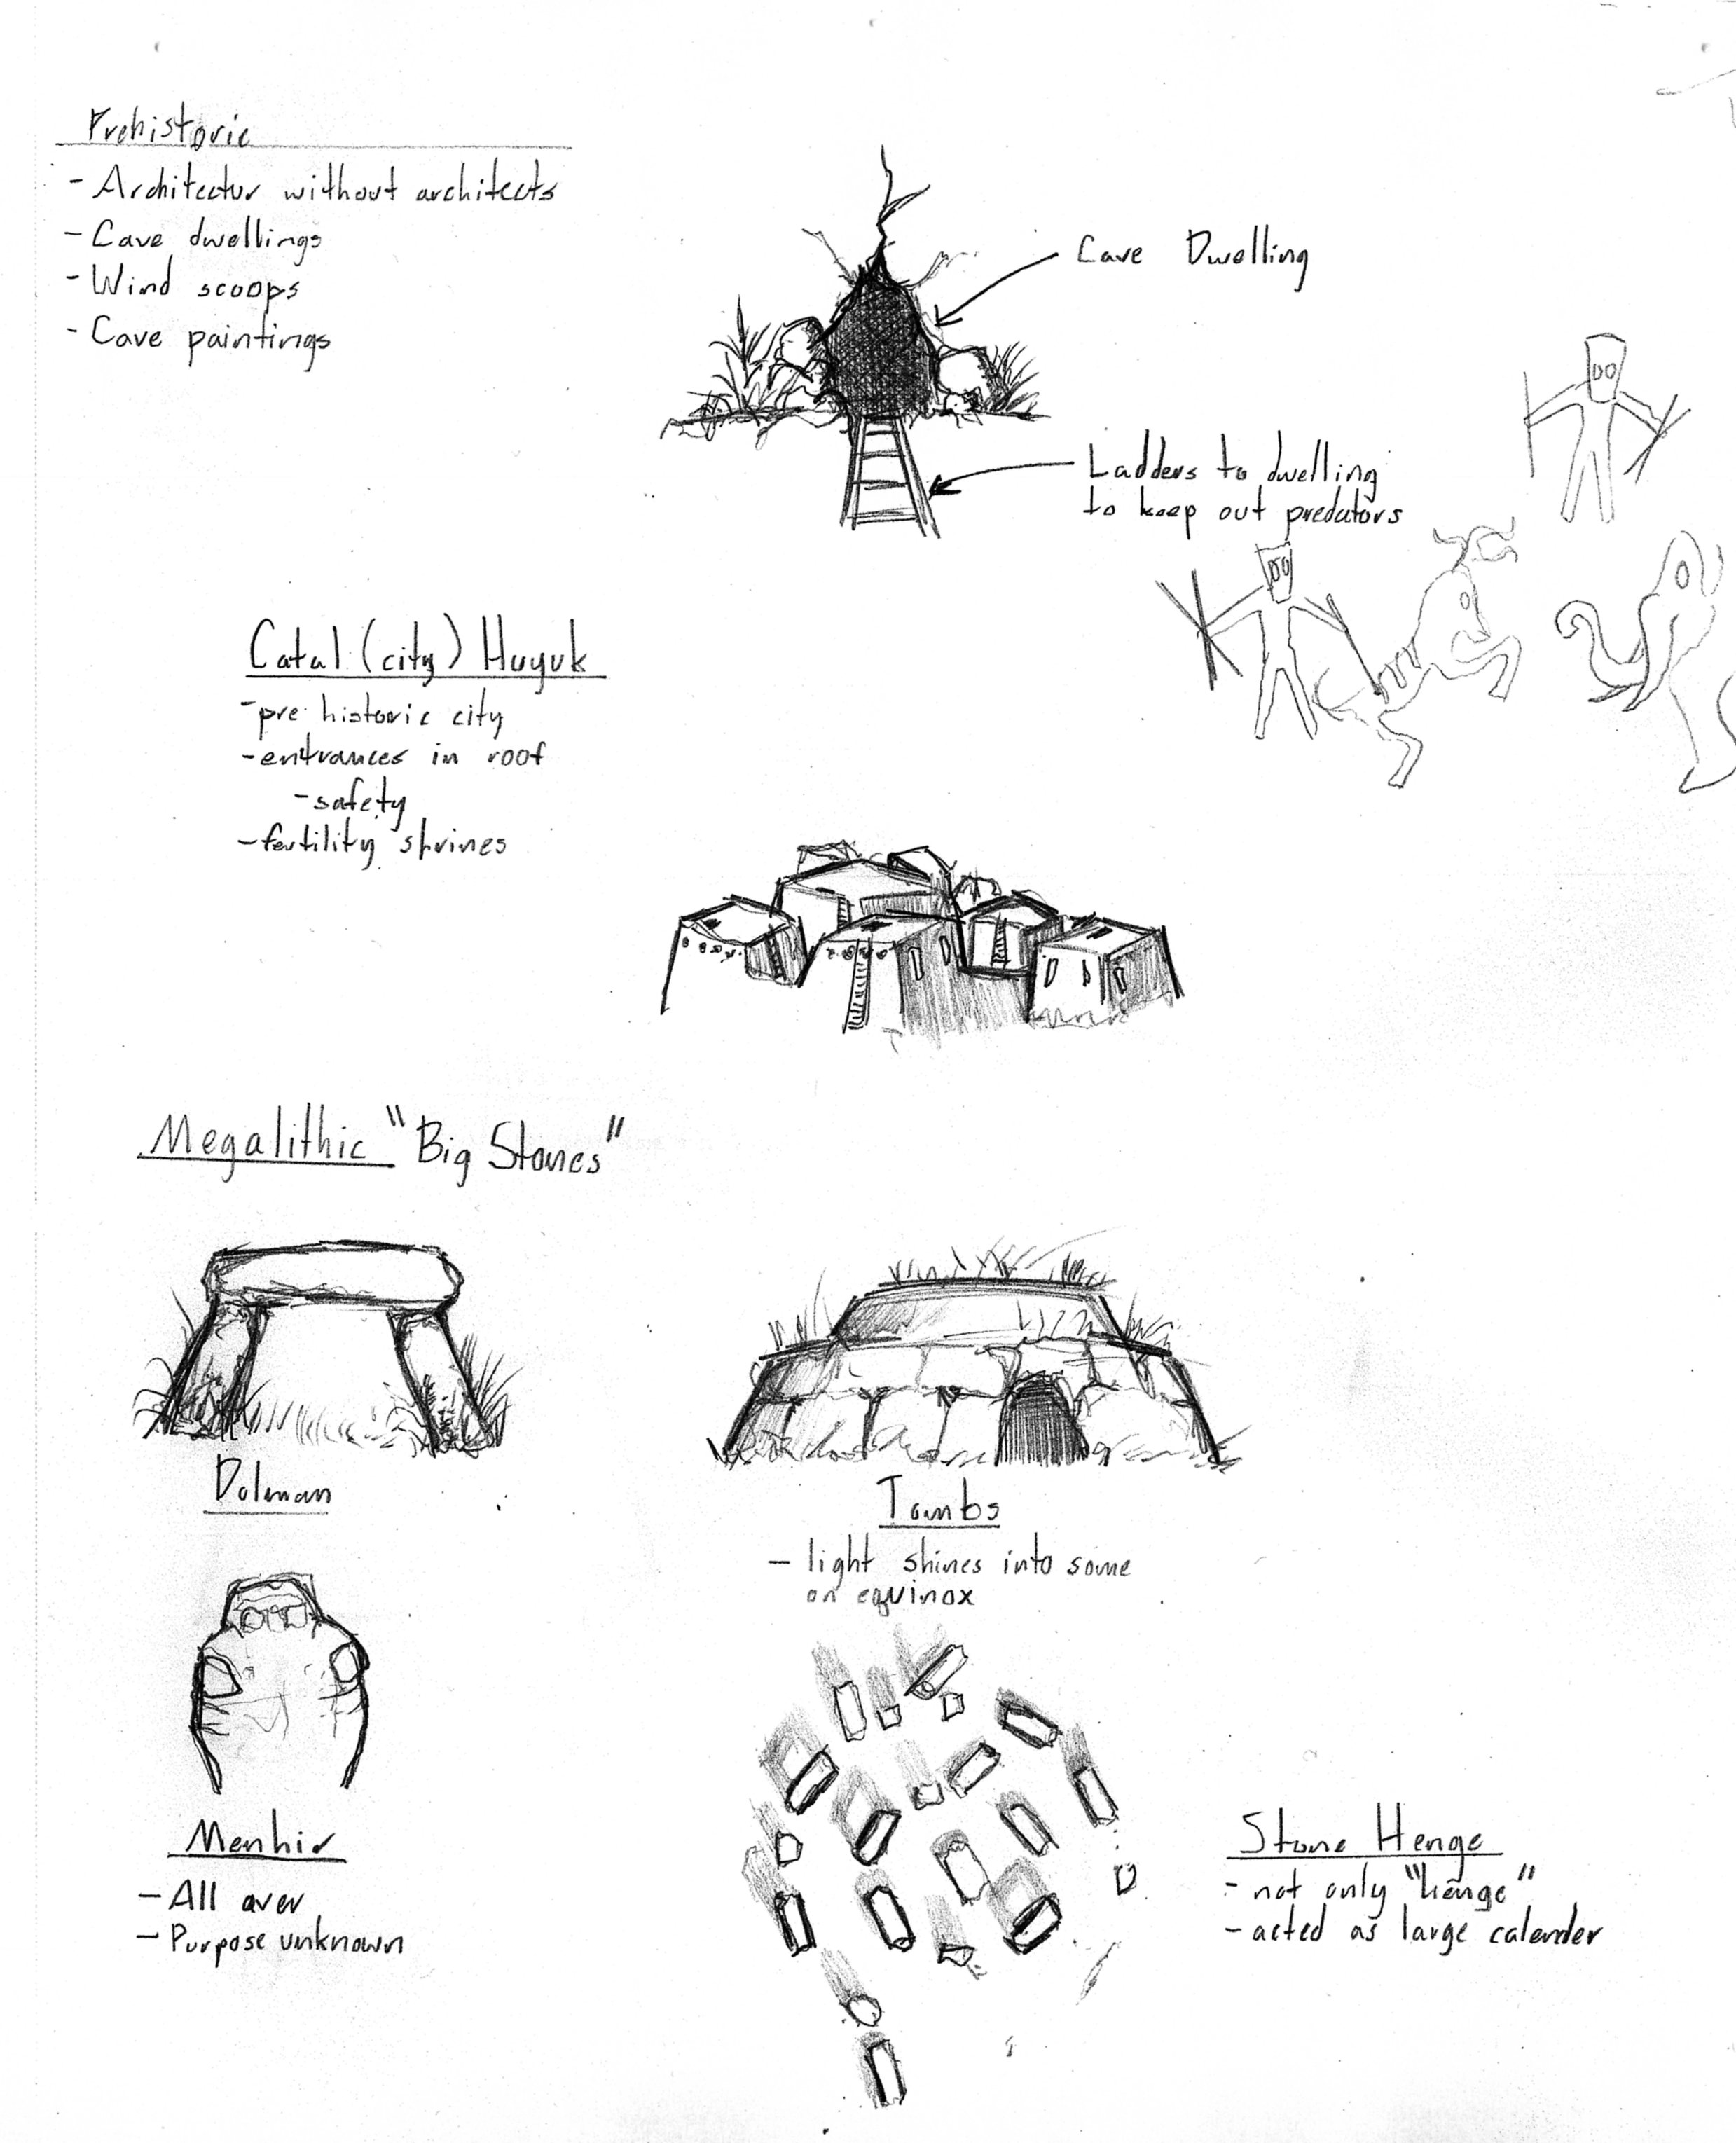 Prehistoric
- Architectur without architects
- Cave dwellings
- Wind scoops
- Cave paintings
Cave Dwelling
Ladders to dwelling
to keep out predators
Catal (city) Huyuk
- pre historic city
- entrances in roof
- safety
- fertility shrines
Megalithic "Big Stones"
Dolman
Tombs
- light shines into some
on equinox
Menhir
- All over
- Purpose unknown
Stone Henge
- not only "henge"
- acted as large calender